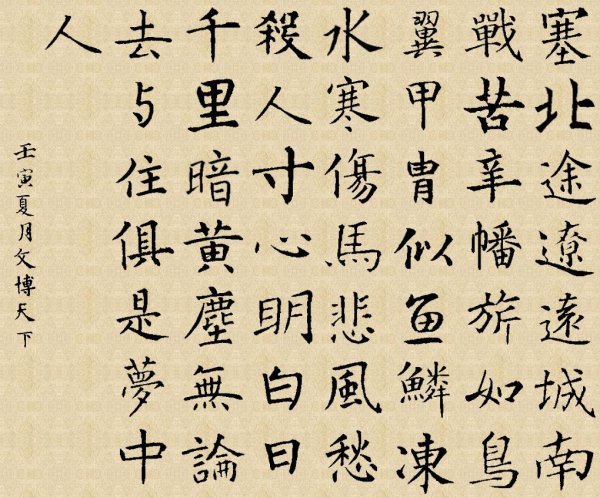 塞北途遼遠城南
戰苦辛幡旂如鳥
翼甲胄似魚鱗凍
水寒傷馬悲風愁
殺人寸心明白日
千里暗黃塵無論
去与住俱是夢中
人
壬寅夏月文博天下